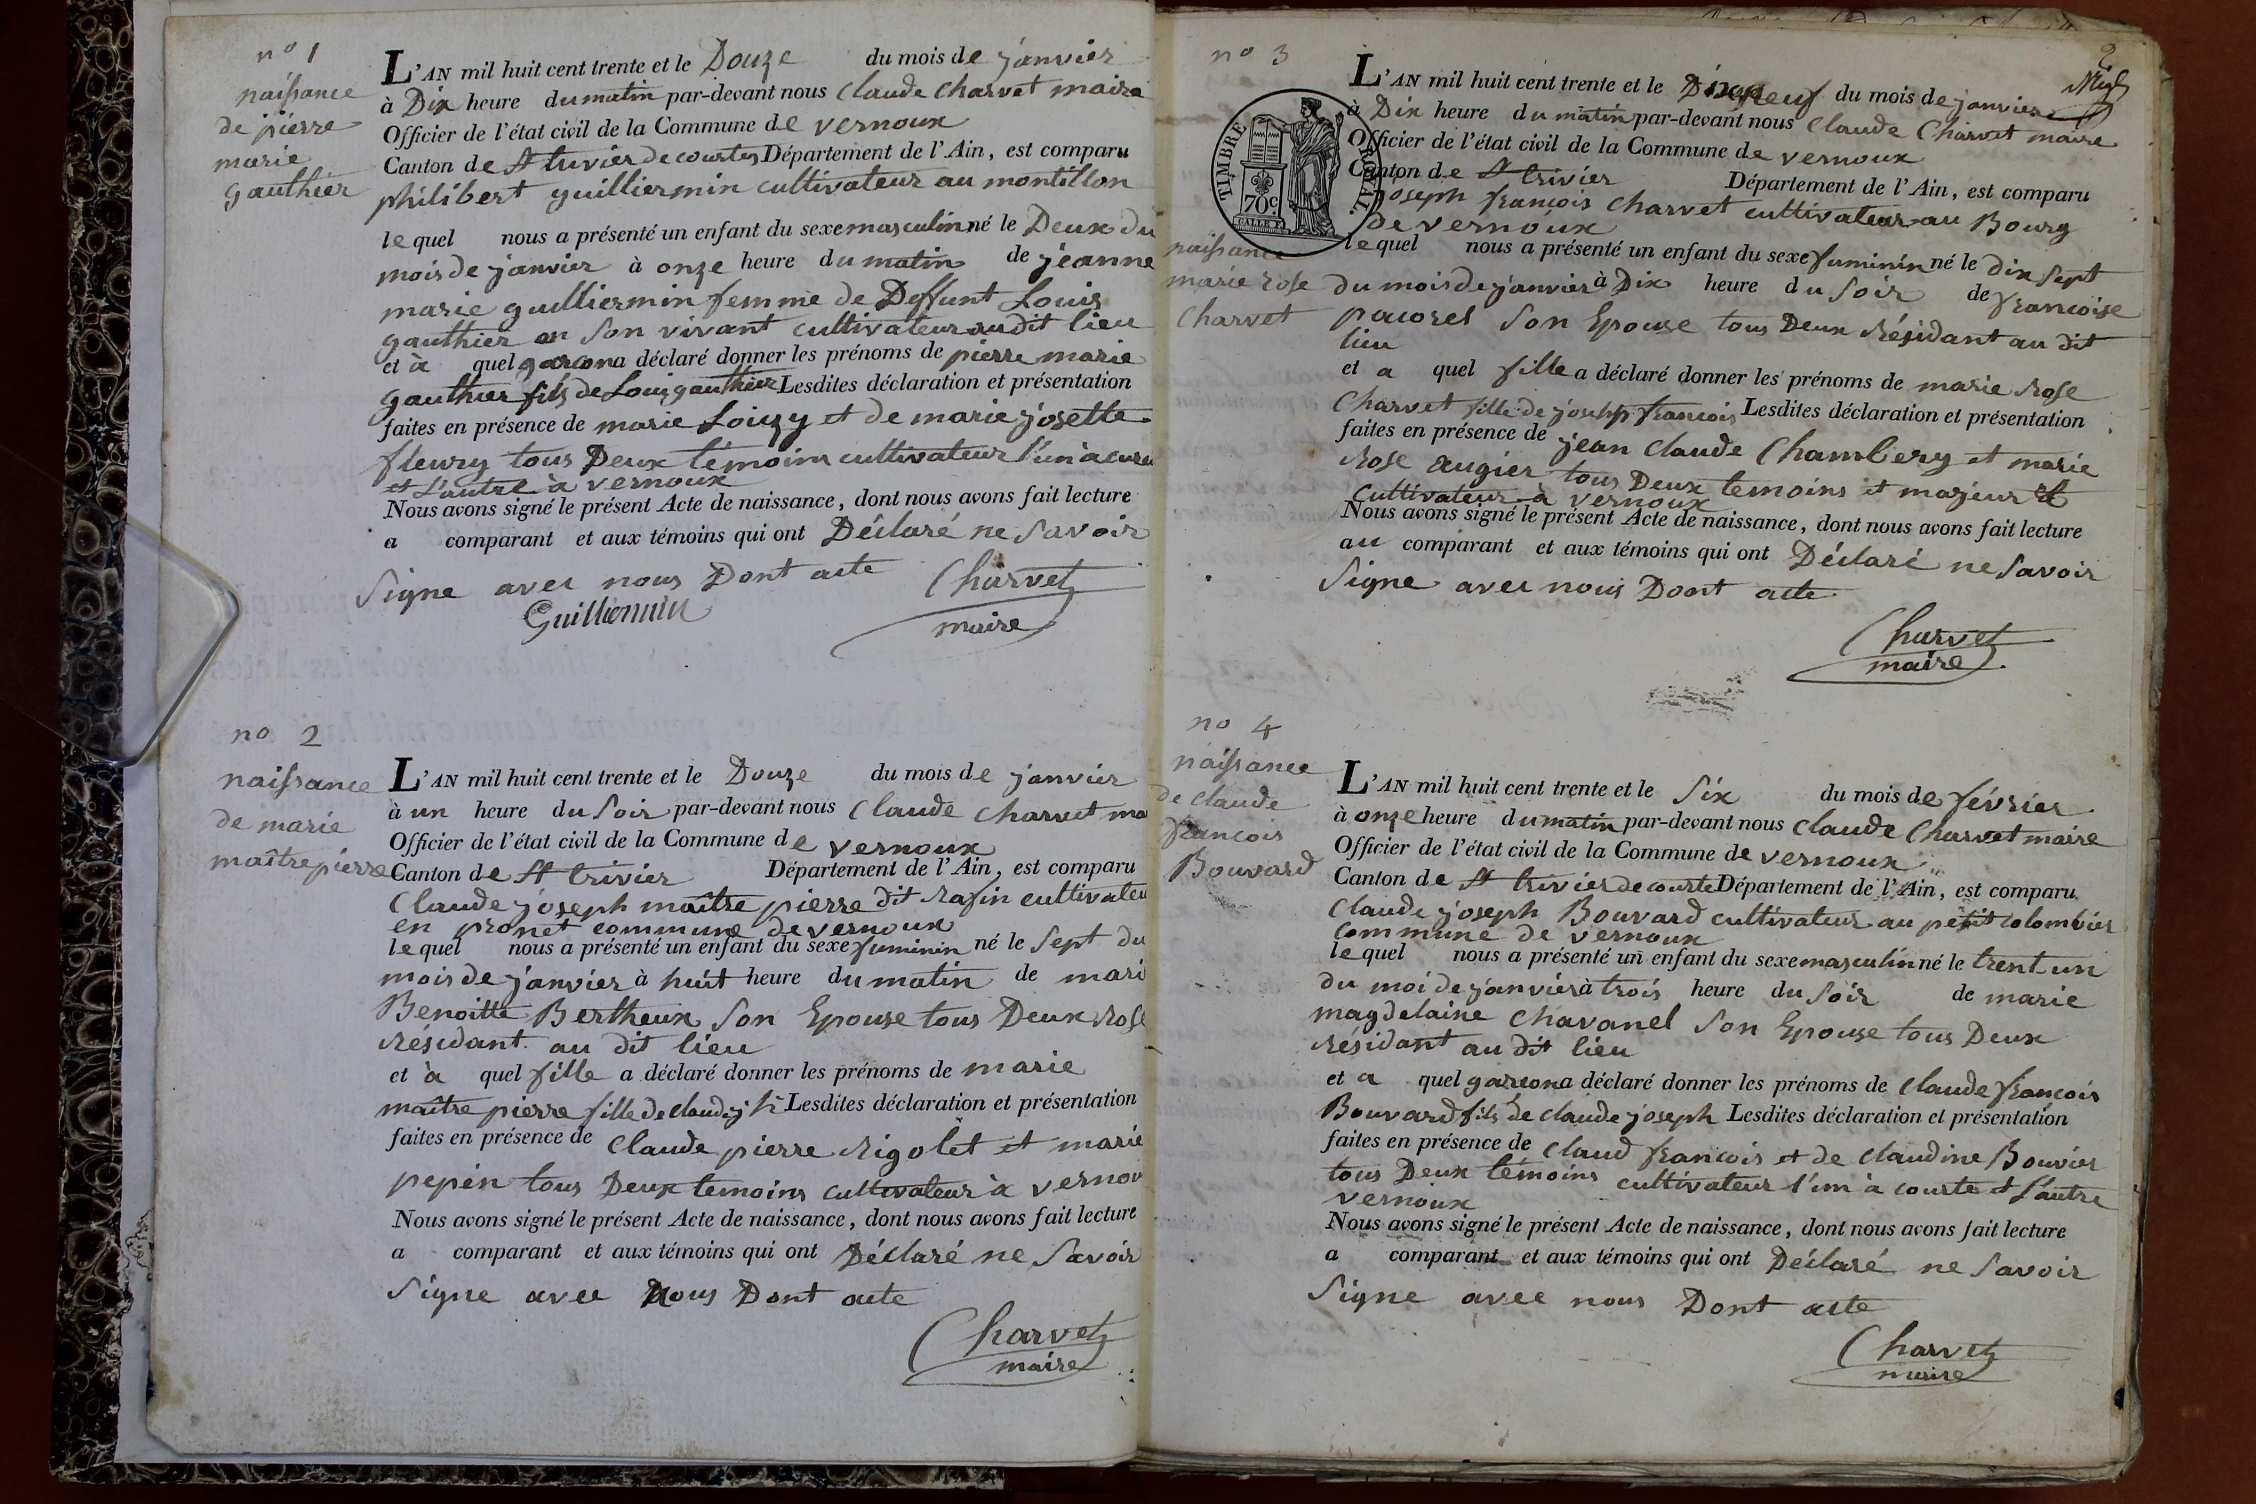 nº 1
naissance
de pierre
marie
gauthier
L'AN mil huit cent trente et le Douze du mois de janvier
à Dix heure du matin par-devant nous Claude Charvet maire
Officier de l'état civil de la Commune de vernoux
Canton de St truvier de courtes Département de l'Ain, est comparu
philibert guilliermin cultivateur au montillon
le quel nous a présenté un enfant du sexe masculin né le Deux du
mois de janvier à onze heure du matin de jeanne
marie guilliermin femme de Deffunt Louis
gauthier en son vivant cultivateur audit lieu
et à quel garcon a déclaré donner les prénoms de pierre marie
gauthier fils de Louis gauthier Lesdites déclaration et présentation
faites en présence de marie Loizy et de marie josette
fleury tous Deux témoins cultivateur l'un à
et L'autre à vernoux
Nous avons signé le présent Acte de naissance, dont nous avons fait lecture
a comparant et aux témoins qui ont Déclaré ne savoir
Signe avec nous Dont acte
Guilliermin
Charvet
maire
no 2
naissance
de marie
maître pierre
L'AN mil huit cent trente et le Douze du mois de janvier
à un heure du soir par-devant nous Claude Charvet ma
Officier de l'état civil de la Commune de vernoux
Canton de St trivier Département de l'Ain, est comparu
Claude joseph maître pierre dit rafin cultivateu
en pronet commune de vernoux
le quel nous a présenté un enfant du sexe fuminin né le sept du
mois de janvier à huit heure du matin de mari
Benoitte Bertheux son Epouse tous Deux
résidant au dit lieu
et à quel fille a déclaré donner les prénoms de marie
maître pierre fille de claude jh Lesdites déclaration et présentation
faites en présence de Claude pierre rigolet et marie
pepin tous Deux temoins cultivateur à vernou
Nous avons signé le présent Acte de naissance, dont nous avons fait lecture
a comparant et aux témoins qui ont Déclaré ne savoir
Signe avec nous Dont acte
Charvet
maire
2
nº 3
TIMBRE ROYAL.
70c
naissance
marie rose
Charvet
L'AN mil huit cent trente et le Dix neuf du mois de janvier
à Dix heure du matin par-devant nous Claude Charvet maire
Officier de l'état civil de la Commune de vernoux
Canton de St trivier Département de l'Ain, est comparu
joseph françois Charvet cultivateur au Bourg
de vernoux
le quel nous a présenté un enfant du sexe fuminin né le dix sept
du mois de janvier à Dix heure du soir de francoise
pacoret son Epouse tous Deux résidant au dit
lieu
et a quel fille a déclaré donner les prénoms de marie rose
Charvet fille de joseph francois Lesdites déclaration et présentation
faites en présence de jean Claude Chambery et marie
rose augier tous Deux temoins et majeur et
cultivateur à vernoux
Nous avons signé le présent Acte de naissance, dont nous avons fait lecture
au comparant et aux témoins qui ont Déclaré ne savoir
Signe avec nous Dont acte
Charvet
maire
no 4
naissance
de claude
francois
Bouvard
L'AN mil huit cent trente et le Six du mois de février
à onze heure du matin par-devant nous Claude Charvet maire
Officier de l'état civil de la Commune de vernoux
Canton de St trivier de courte Département de l'Ain, est comparu
Claude joseph Bouvard cultivateur au petit colombier
commune de vernoux
le quel nous a présenté un enfant du sexe masculin né le trent un
du moi de janvier à trois heure du soir de marie
magdelaine Chavanel son Epouse tous Deux
résidant au dit lieu
et a quel garcon a déclaré donner les prénoms de Claude françois
Bouvard fils de claude joseph Lesdites déclaration et présentation
faites en présence de Claud francois et de claudine Bouvier
tous Deux témoins cultivateur l'un à courte et L'autre
vernoux
Nous avons signé le présent Acte de naissance, dont nous avons fait lecture
a comparant et aux témoins qui ont Déclaré ne savoir
Signe avec nous Dont acte
Charvet
maire